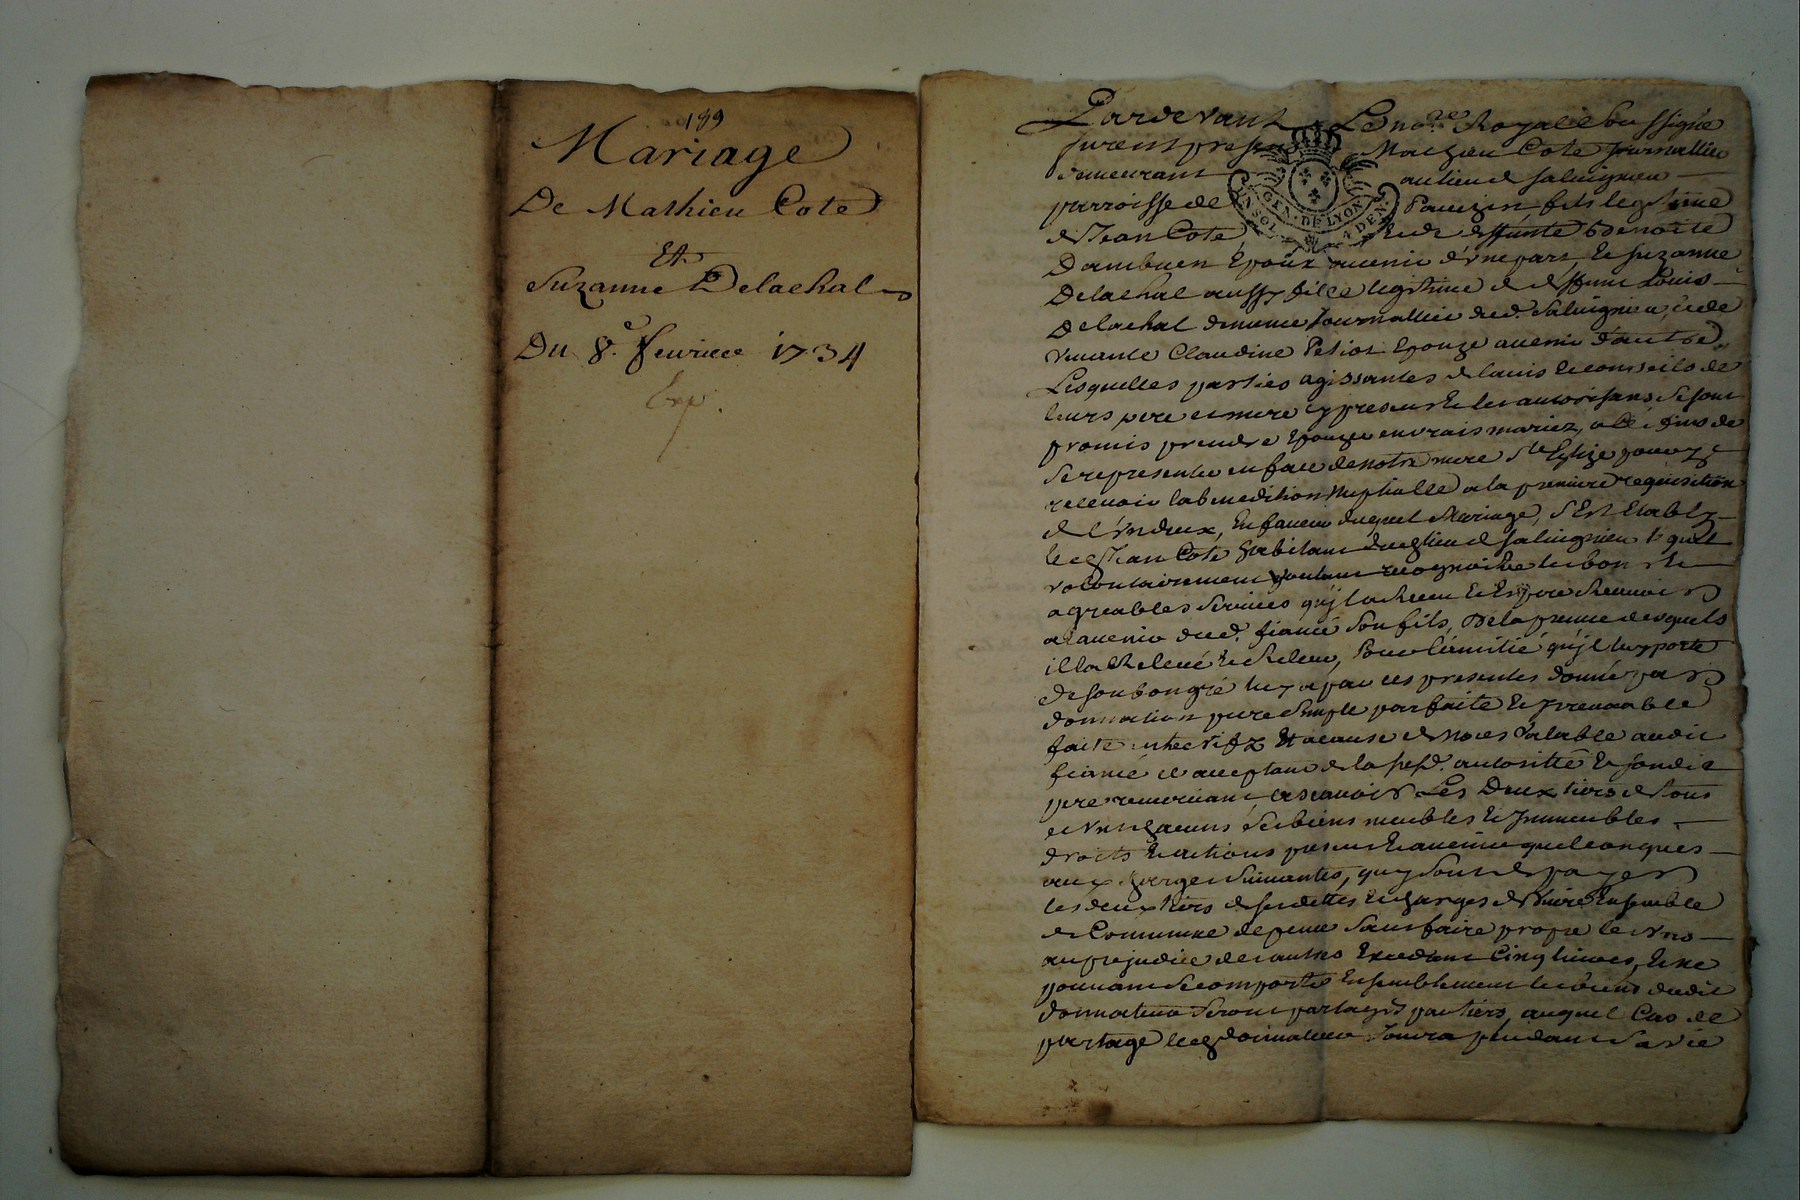 189
Mariage
De Mathieu Cote
Et
Suzanne Delachal
Du 8e. feurier 1734
Exp.
Pardevant Le no.re Royal Soussigné
furent presens Mathieu Cote Journallier
demeurant au lieu de Saluignieu
parroisse de fils legitime
de Jean Cote, et de deffunte Benoite
Dambuen Epoux auenir d'vne part, Et Suzanne
Delachal aussy fille legitime de deffunt Louis
Delachal Journallier dud. Saluignieu, et de
viuante Claudine Epouze auenir d'autre
Lesquelles parties agissantes de lauis Et conseils de
leurs pere et mere cy presens Et les autorisans se sont
promis prendre Epouzer en vrais mariez, a de
Se representer en face de notre mere Ste Eglize pour y
receuoir la benediction Nuptialle a la premiere requisition
de l'vn deux, En faueur duquel Mariage, s'Est Etably
led. Jean Cote habitant dud. lieu de Saluignieu lequel
volontairement voulant recognoitre les bons Et
agreables Seruices qu'il a Receu Et Espere Receuoir
a lauenir dud. fiancé Son fils, De la preuue desquels
il la Releué Et Releue, Pour l'amitié qu'il luy porte
de son bon gré luy a par ces presentes donné par
donnation pure simple parfaite Et Irreuocable
faite entre vifz Et a cause de noces Valable audit
fiancé acceptant de la susd. autorité Et sondit
pere remerciant, ascauoir Les Deux tiers de tous
et vns chacuns Ses biens meubles Et Immeubles
droits Et actions presens Et auenir quelconques
aux charges Suiuantes, quy Sont de payer
les deux tiers de ses dettes Et charges de viure Ensemble
de Commune depence Sans faire propre les vns
au prejudice des autres Excedant Cinq liures, Et ne
pouuant Se comporter Ensemblement les biens dudit
donnateur Seront partagés par tiers, auquel Cas de
partage led. donnateur Jouira pendant Sa vie
GEN. DE LYON